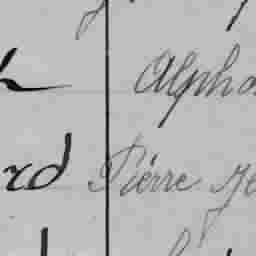 h Alpho
rd Pierre Je